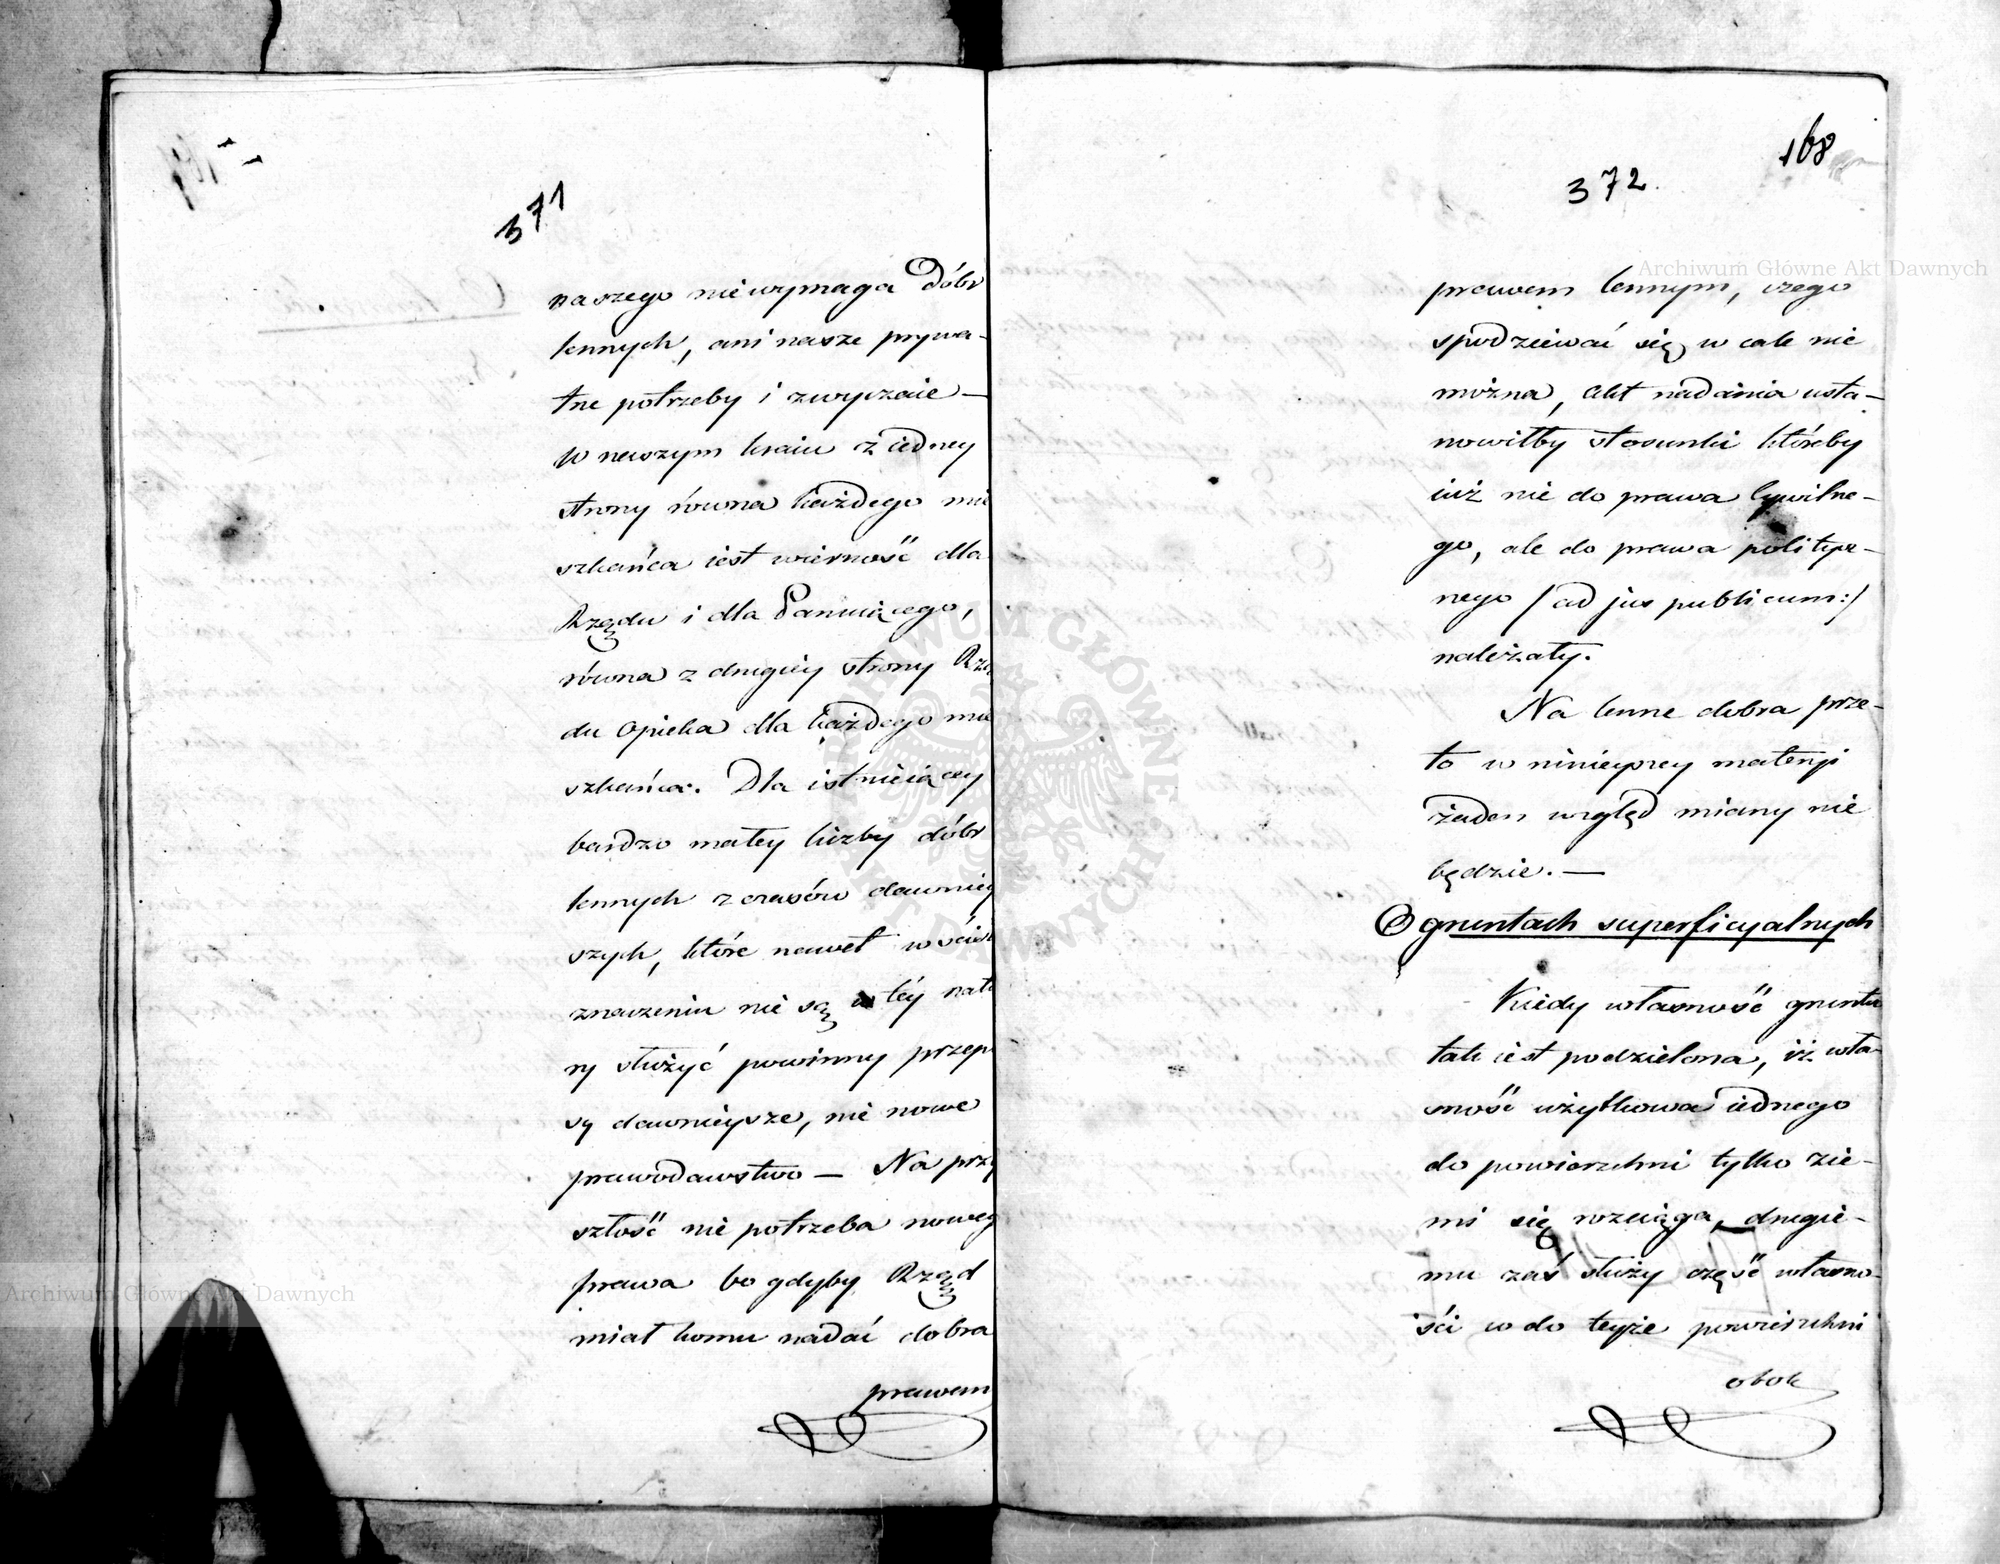 371
naszego niewymaga Dóbr
lennych, ani nasze prywa-
tne potrzeby i zwyczaie —
W naszym kraiu z iedney
strony równa każdego mie
szkańca iest wierność dla
Rządu i dla Panuiącego,
równa z drugiey strony Rzą
du Opieka dla każdego mie
szkańca. Dla istnieiącey
bardzo małey liczby dóbr
lennych z czasów dawniey
szych, które nawet w ścisł
znaczeniu nie są w téy natu
ry służyć powinny przepi
sy dawnieysze, nie nowe
prawodawstwo — Na przy
szłość nie potrzeba noweg
prawa bo gdyby Rząd
miał komu nadać dobra
prawem
168
372.
prawem lennym, czego
spodziewać się w cale nie
można, Akt nadania usta-
nowiłby stosunki któreby
iuż nie do prawa Cywilne-
go, ale do prawa politycz-
nego /ad jus publicum:/
należały.
Na lenne dobra prze-
to w ninieyszey materyi
żaden wzgląd miany nie
będzie. —
O gruntach superficyalnych
Kiedy własność gruntu
tak iest podzielona, iż wła-
sność użytkowa iednego
do powierzchni tylko zie-
mi się rozciąga, drugie-
mu zaś służy część własno-
ści w do teyże powierzchni
obok
Archiwum Główne Akt Dawnych
Archiwum Główne Akt Dawnych
ARCHIWUM GŁÓWNE AKT DAWNYCH